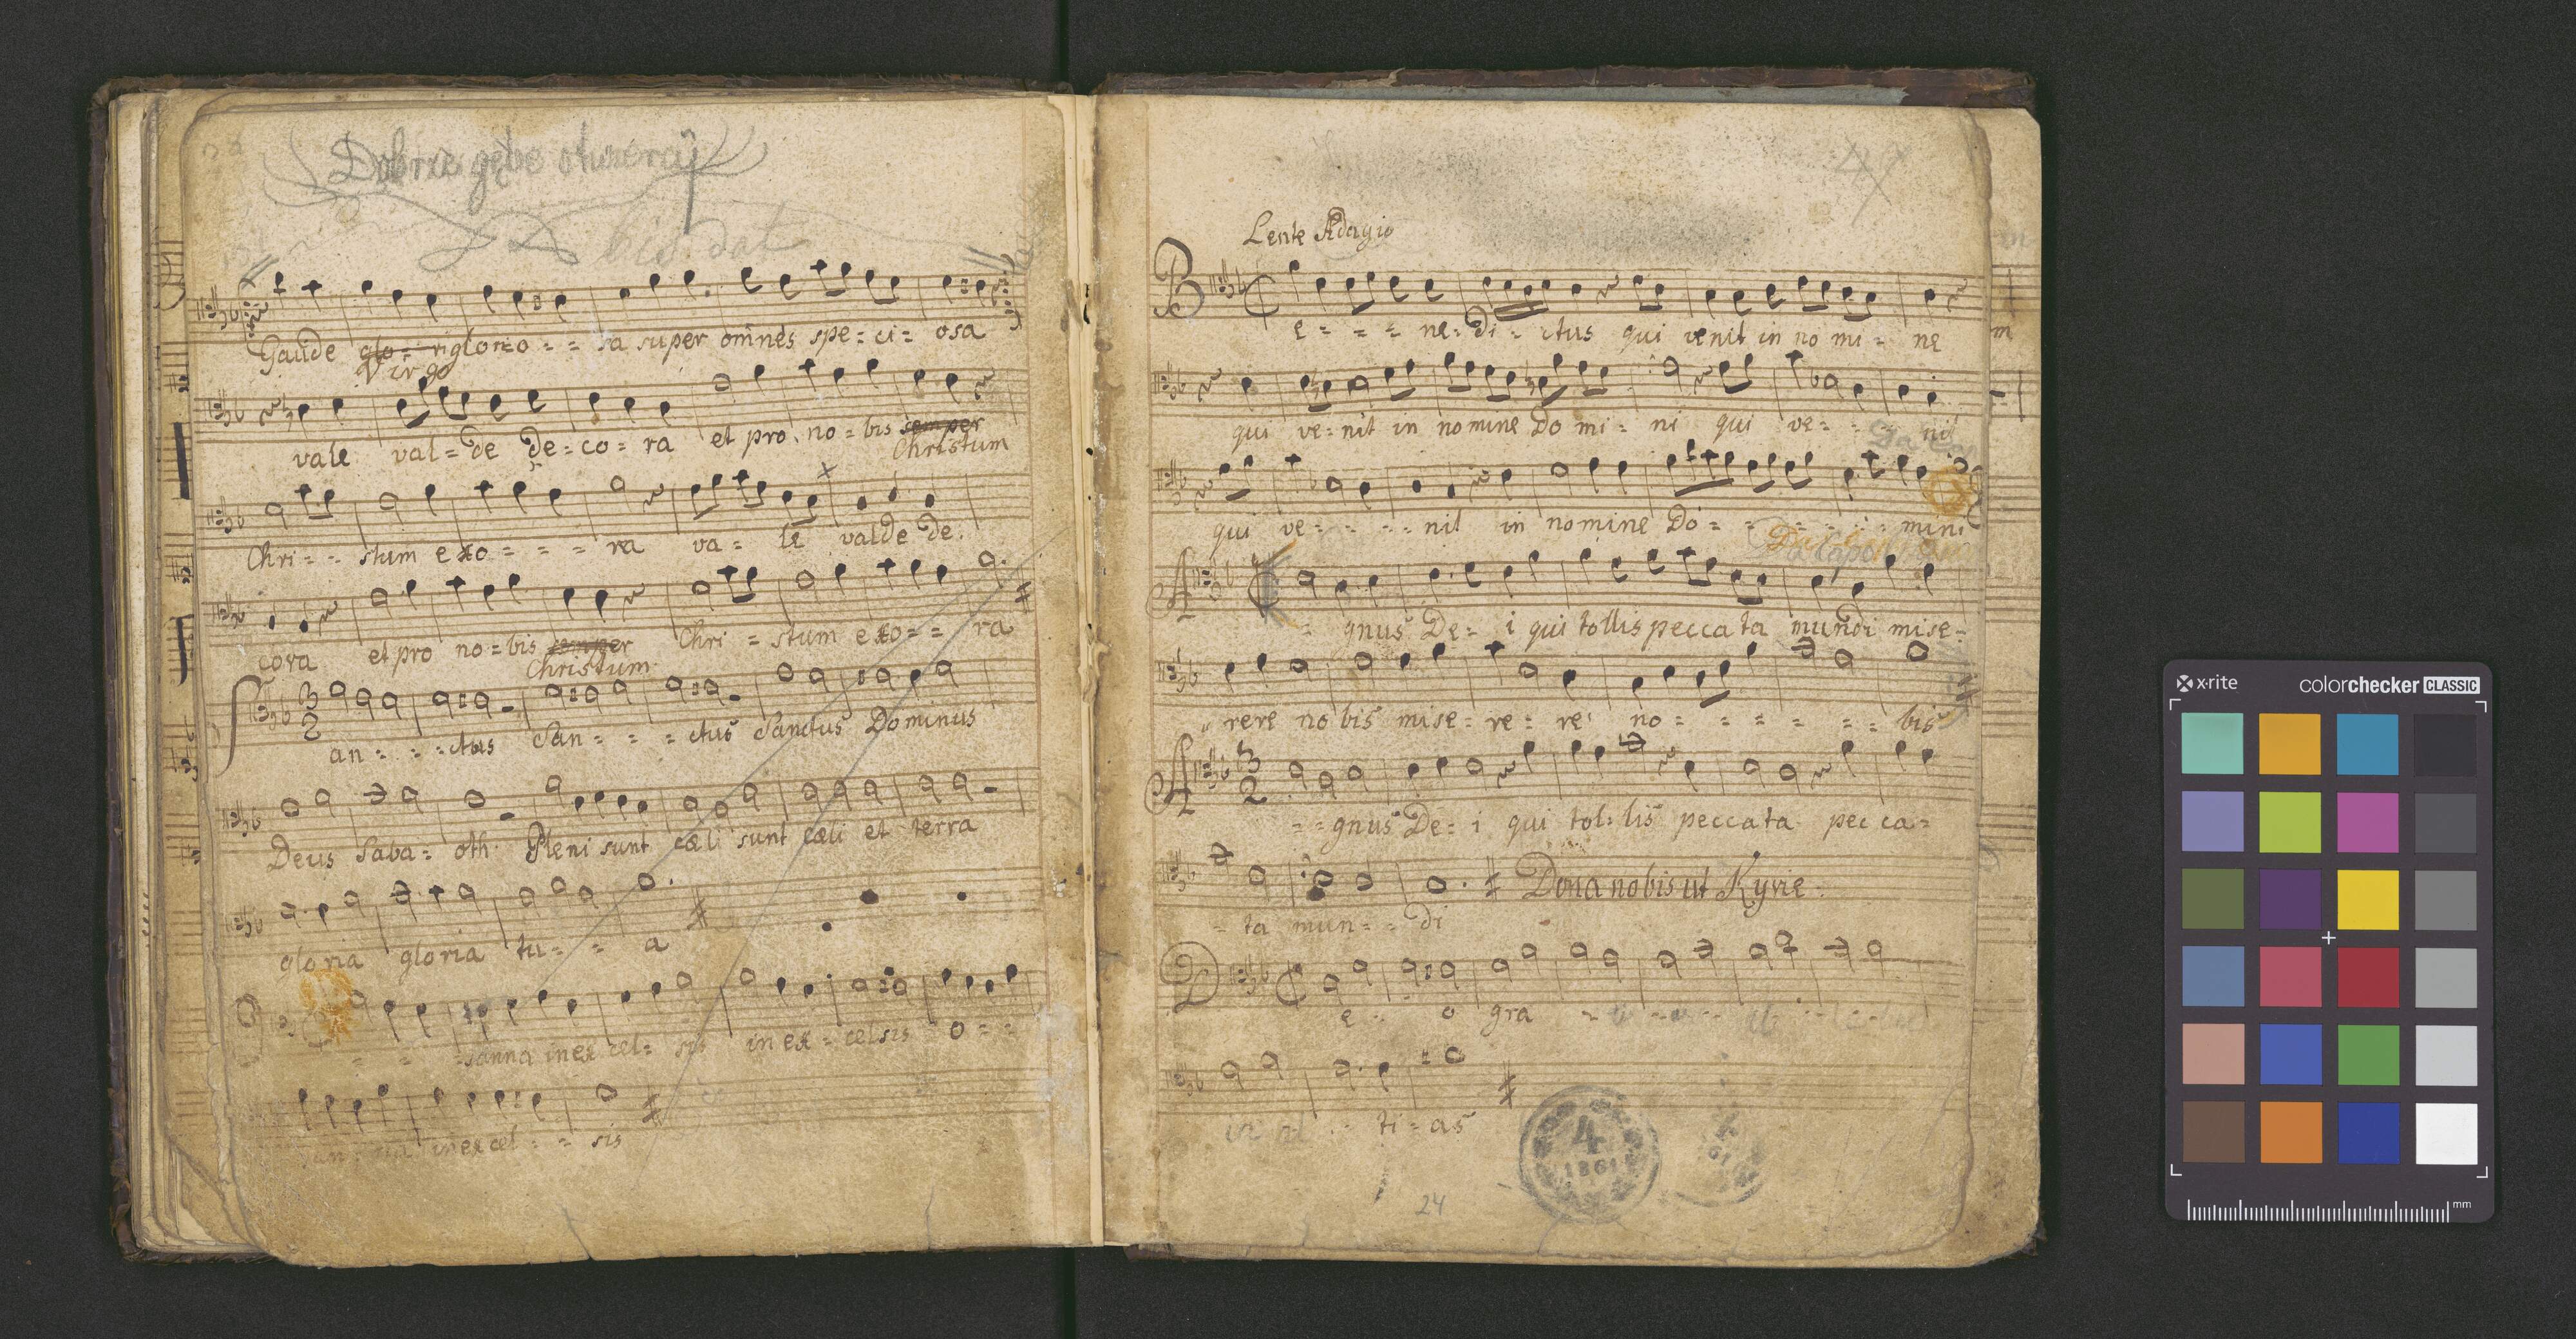 bis dat
Gaude glo = ri glorio = = sa super omnes spe = ci = osa
Virgo
vale val = de De = co = ra et pro no = bis semper
Christum
Chri = - stum exo = = = ra va = le valde De.
cora et pro no = bis semper Chri = stum exo = = ra
Christum
3
2
San = - = ctus San = - = ctus Sanctus Dominus
Deus Saba = oth Pleni sunt cæli sunt cæli et terra
gloria gloria tu = = a
O = = = sanna in excel = sis in ex = celsis o = =
san = na in excel = = sis
Lente Adagio
Be = = = ne = di = ctus qui venit in no mi = ne
qui ve = nit in nomine Do mi = ni qui ve = - = nit
qui ve = - - = nit in nomine Do = - = - = mini
Da Capo
A = gnus De = i qui tollis peccata mundi mise =
rere nobis mise = re = re no = = = = = = bis
3
2
A = = gnus De = i qui tol = lis peccata pec ca =
= ta mun = = di
Dona nobis ut Kyrie
De - o gra
ti = as
4
1861
24
x-rite
colorchecker CLASSIC
mm